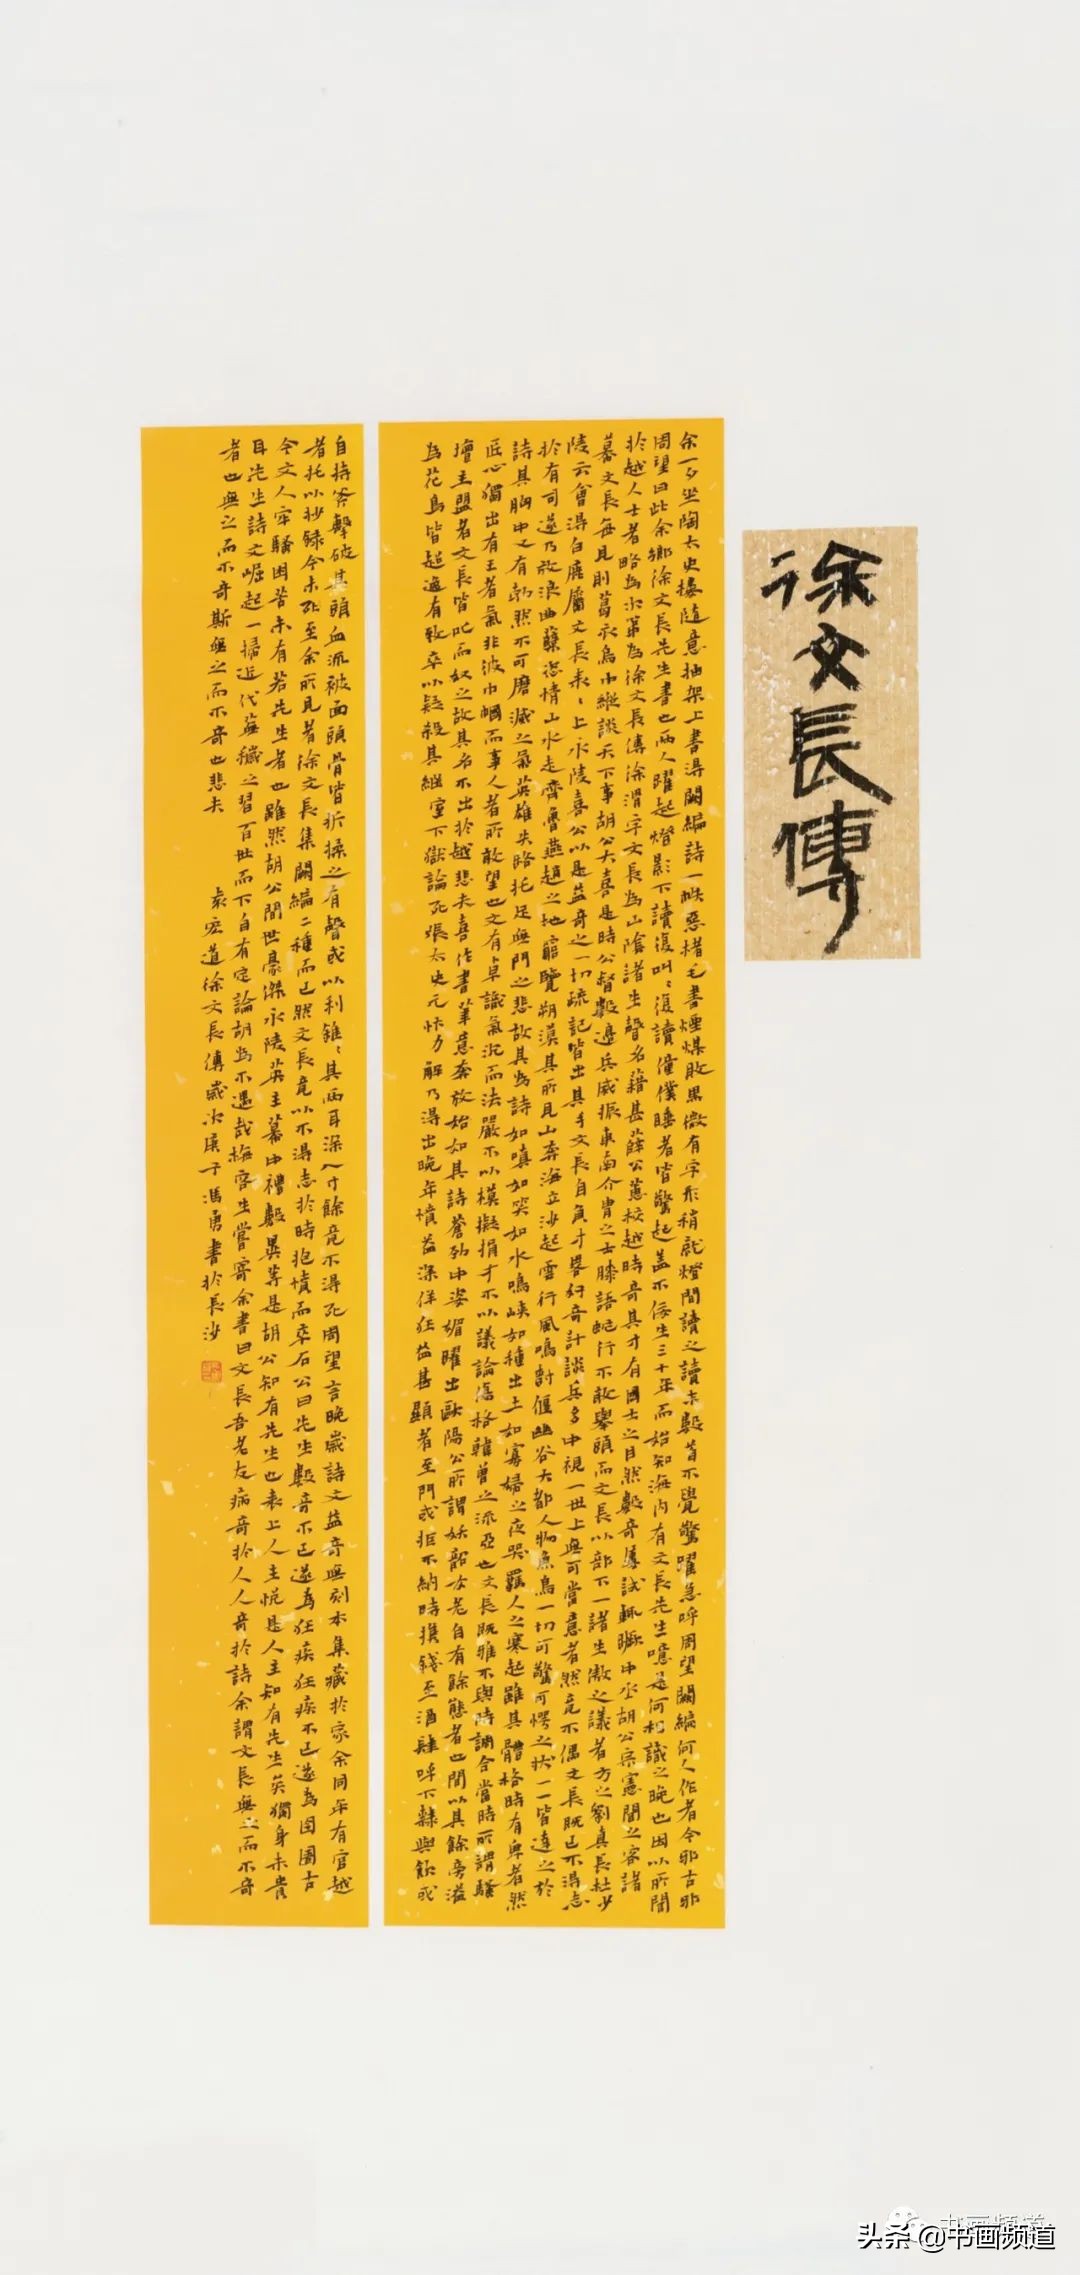 徐文長傳
余一夕坐陶太史樓隨意抽架上書得闕編詩一帙惡楮毛書煙煤敗黑微有字形稍就燈間讀之讀未數首不覺驚躍急呼周望闕編何人作者今邪古邪
周望曰此余鄉徐文長先生書也兩人躍起燈影下讀復叫〻復讀僮僕睡者皆驚起蓋不佞生三十年而始知海內有文長先生噫是何相識之晚也因以所聞
於越人士者略為次第為徐文長傳徐渭字文長為山陰諸生聲名藉甚薛公蕙校越時奇其才有國士之目然數奇屢試輒蹶中丞胡公宗憲聞之客諸
幕文長每見則葛衣烏巾縱談天下事胡公大喜是時公督數邊兵威振東南介胄之士膝語蛇行不敢舉頭而文長以部下一諸生傲之議者方之劉真長杜少
陵云會得白鹿屬文長表〻上永陵喜公以是益奇之一切疏記皆出其手文長自負才畧好奇計談兵多中視一世上無可當意者然竟不偶文長既已不得志
於有司遂乃放浪曲蘗恣情山水走齊魯燕趙之地窮覽朔漠其所見山奔海立沙起雲行風鳴樹偃幽谷大都人物魚鳥一切可驚可愕之狀一一皆達之於
詩其胸中又有勃然不可磨滅之氣英雄失路托足無門之悲故其為詩如嗔如笑如水鳴峽如種出土如寡婦之夜哭羈人之寒起雖其體格時有卑者然
匠心獨出有王者氣非彼巾幗而事人者所敢望也文有卓識氣沉而法嚴不以模擬損才不以議論傷格韓曾之流亞也文長既雅不與時調合當時所謂騷
壇主盟者文長皆叱而奴之故其名不出於越悲夫喜作書筆意奔放始知其詩蒼勁中姿媚躍出歐陽公所謂妖韶女老自有餘態者也間以其餘旁溢
為花鳥皆超逸有致卒以疑殺其繼室下獄論死張太史元忭力解乃得出晚年憤益深佯狂益甚顯者至門或拒不納時攜錢至酒肆呼下隸與飲或
自持斧擊破其頭血流被面頭骨皆折揉之有聲或以利錐〻其兩耳深入寸餘竟不得死周望言晚歲詩文益奇無刻本集藏於家余同年有官越
者托以抄錄今未至余所見者徐文長集闕編二種而已然文長竟以不得志於時抱憤而卒石公曰先生數奇不已遂為狂疾狂疾不已遂為囹圄古
今文人牢騷困苦未有若先生者也雖然胡公間世豪傑永陵英主幕中禮數異等是胡公知有先生也表上人主悅是人主知有先生矣獨身未貴
耳先生詩文崛起一掃近代蕪穢之習百世而下自有定論胡為不遇哉梅客生嘗寄余書曰文長吾老友病奇於人人奇於詩余謂文長無之而不奇
者也無之而不奇斯無之而不奇也悲夫 袁宏道徐文長傳歲次庚子馮勇書於長沙
头条 @书画频道